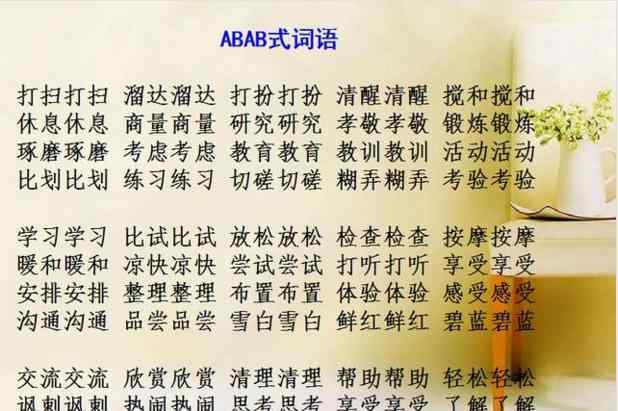 ABAB式词语
打扫打扫 溜达溜达 打扮打扮 清醒清醒 搅和搅和
休息休息 商量商量 研究研究 孝敬孝敬 锻炼锻炼
琢磨琢磨 考虑考虑 教育教育 教训教训 活动活动
比划比划 练习练习 切磋切磋 糊弄糊弄 考验考验
学习学习 比试比试 放松放松 检查检查 按摩按摩
暖和暖和 凉快凉快 尝试尝试 打听打听 享受享受
安排安排 整理整理 布置布置 体验体验 感受感受
沟通沟通 品尝品尝 雪白雪白 鲜红鲜红 碧蓝碧蓝
交流交流 欣赏欣赏 清理清理 帮助帮助 轻松轻松
讽刺讽刺 热闹热闹 思考思考 享受享受 了解了解